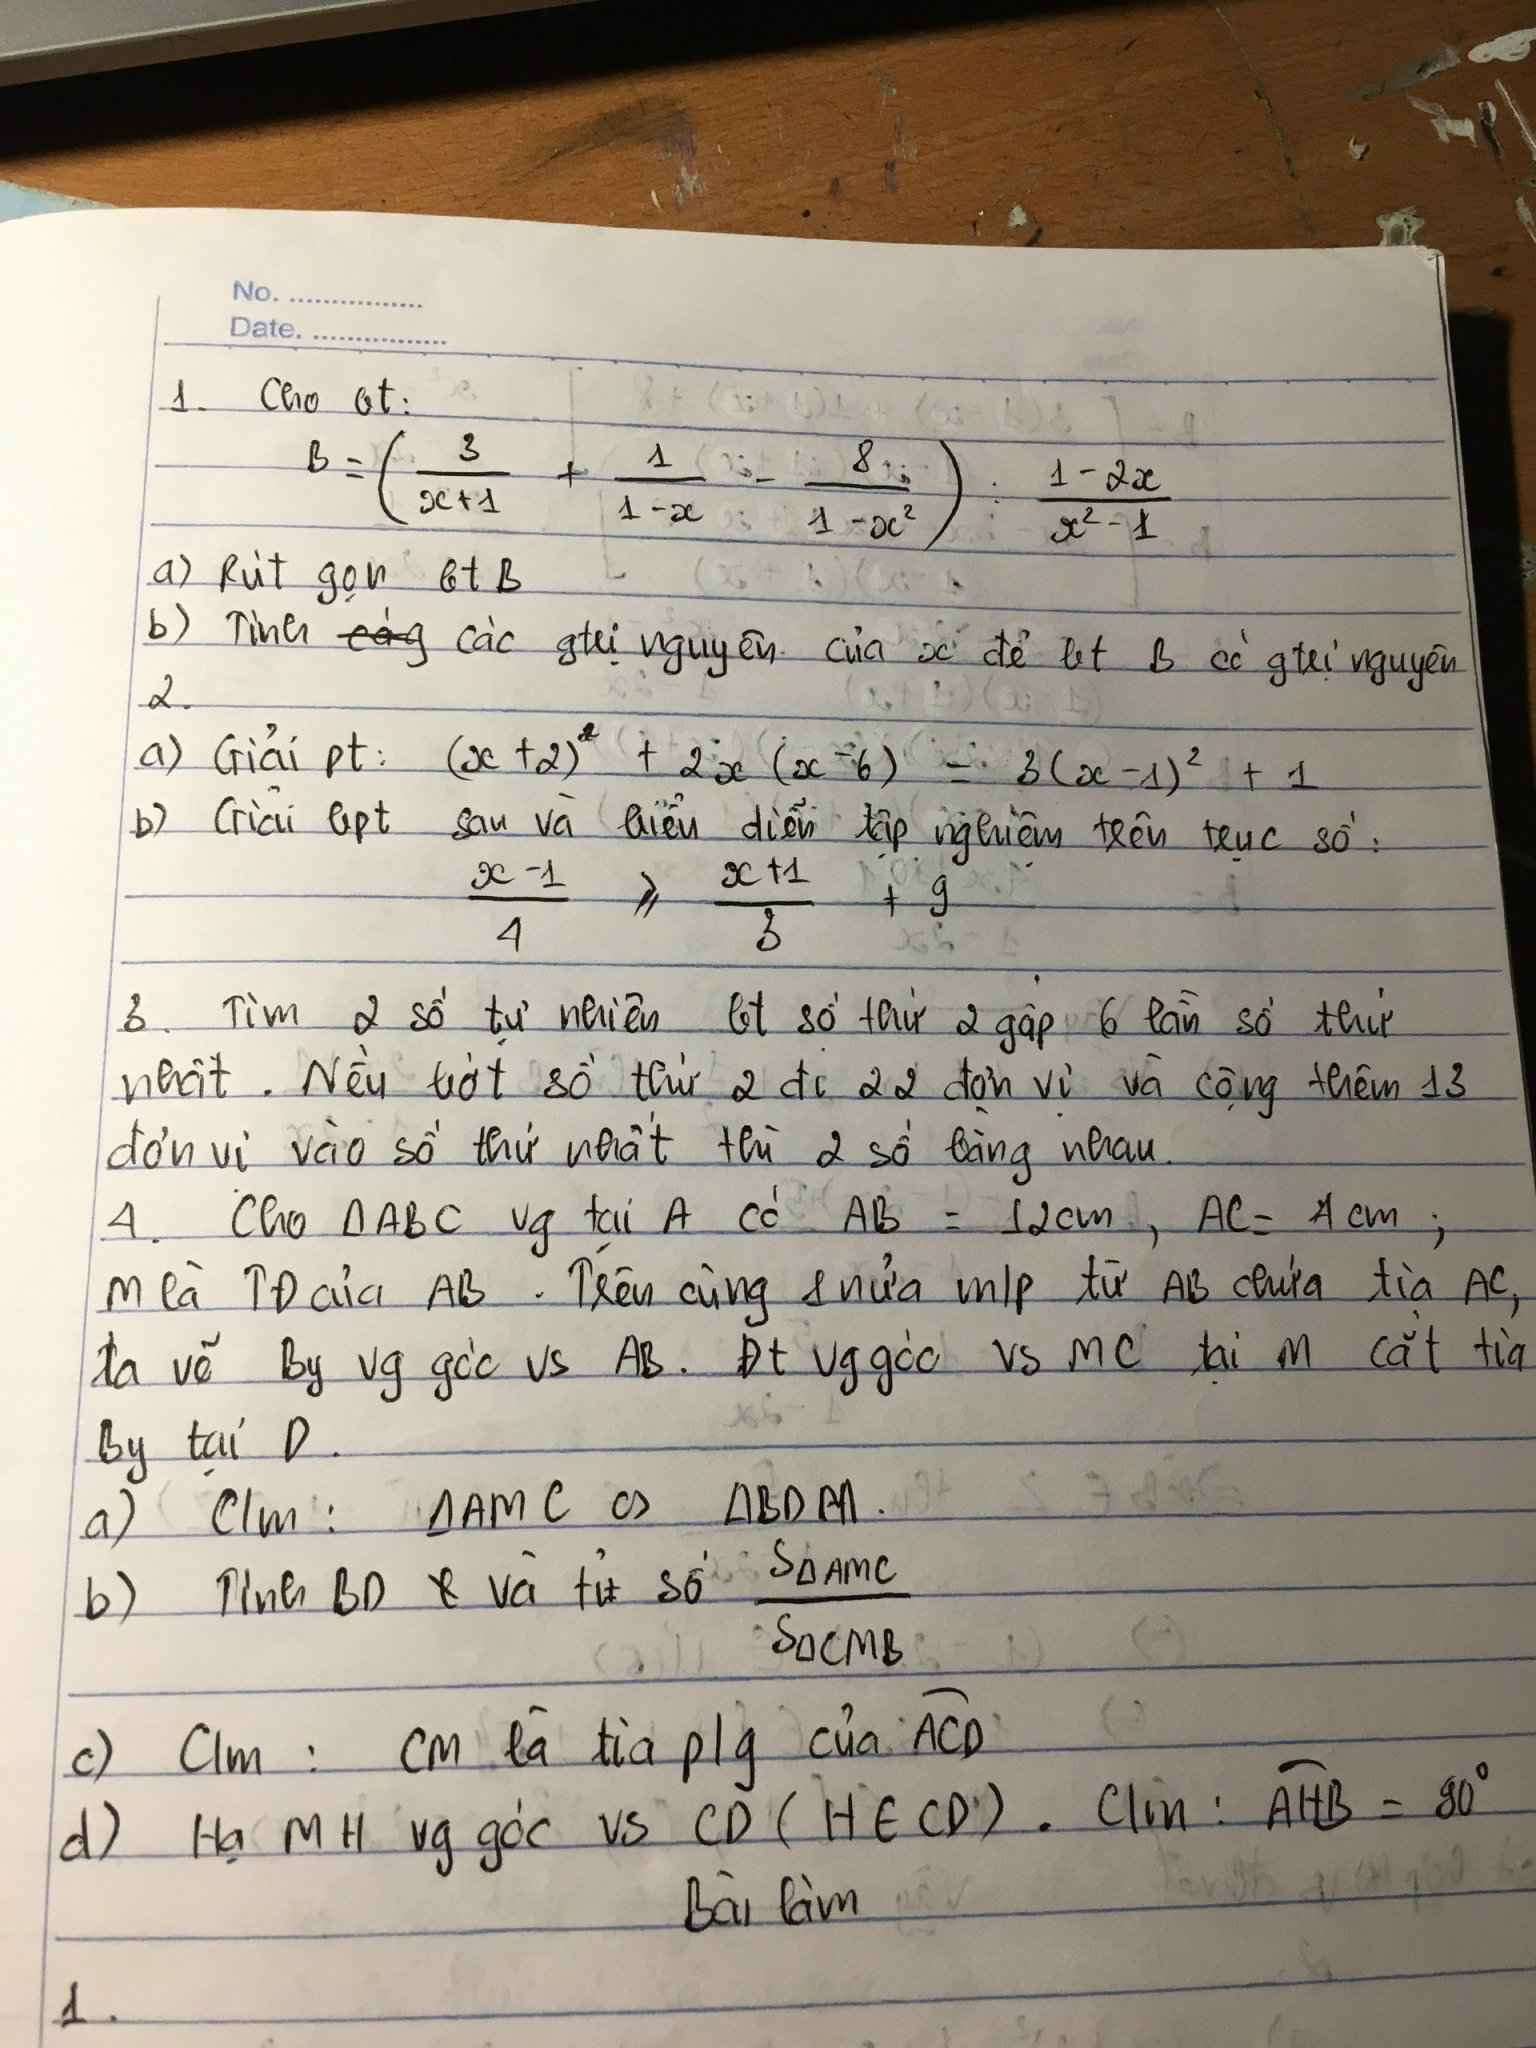 No. ................
Date. ................
1. Cho bt:
B = ( 3/(x+1) + 1/(1-x) - 8/(1-x²) ) : (1-2x)/(x²-1)
a) Rút gọn bt B
b) Tính các gtrị nguyên của x để bt B có gtrị nguyên
2.
a) Giải pt: (x+2)² + 2x(x-6) = 3(x-1)² + 1
b) Giải bpt sau và biểu diễn tập nghiệm trên trục số:
(x-1)/4 ≥ (x+1)/3 + 9
3. Tìm 2 số tự nhiên bt số thứ 2 gấp 6 lần số thứ
nhất. Nếu bớt số thứ 2 đi 22 đơn vị và cộng thêm 13
đơn vị vào số thứ nhất thì 2 số bằng nhau.
4. Cho ΔABC vg tại A có AB = 12cm, AC = 4cm;
M là TĐ của AB. Trên cùng 1 nửa m/p từ AB chứa tia AC,
ta vẽ By vg góc vs AB. Đt vg góc vs MC tại M cắt tia
By tại D.
a) C/m: ΔAMC ∽ ΔBDM.
b) Tính BD và tỉ số SΔAMC/SΔCMB
c) C/m: CM là tia p/g của ACD
d) Hạ MH vg góc vs CD (H ∈ CD). C/m: AHB = 90°
Bài làm
1.